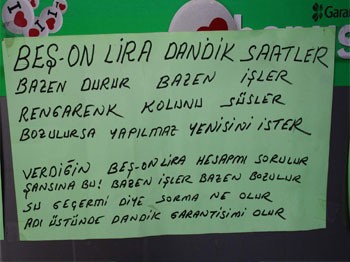 Garan
I
BEŞ-ON LİRA DANDİK SAATLER
BAZEN DURUR BAZEN İŞLER
RENGARENK KOLUNU SÜSLER
BOZULURSA YAPILMAZ YENİSİNİ İSTER
VERDİĞİN BEŞ-ON LİRA HESAPMI SORULUR
ŞANSINA BU! BAZEN İŞLER BAZEN BOZULUR
SU GEÇERMİ DİYE SORMA NE OLUR
ADI ÜSTÜNDE DANDİK GARANTİSİMİ OLUR